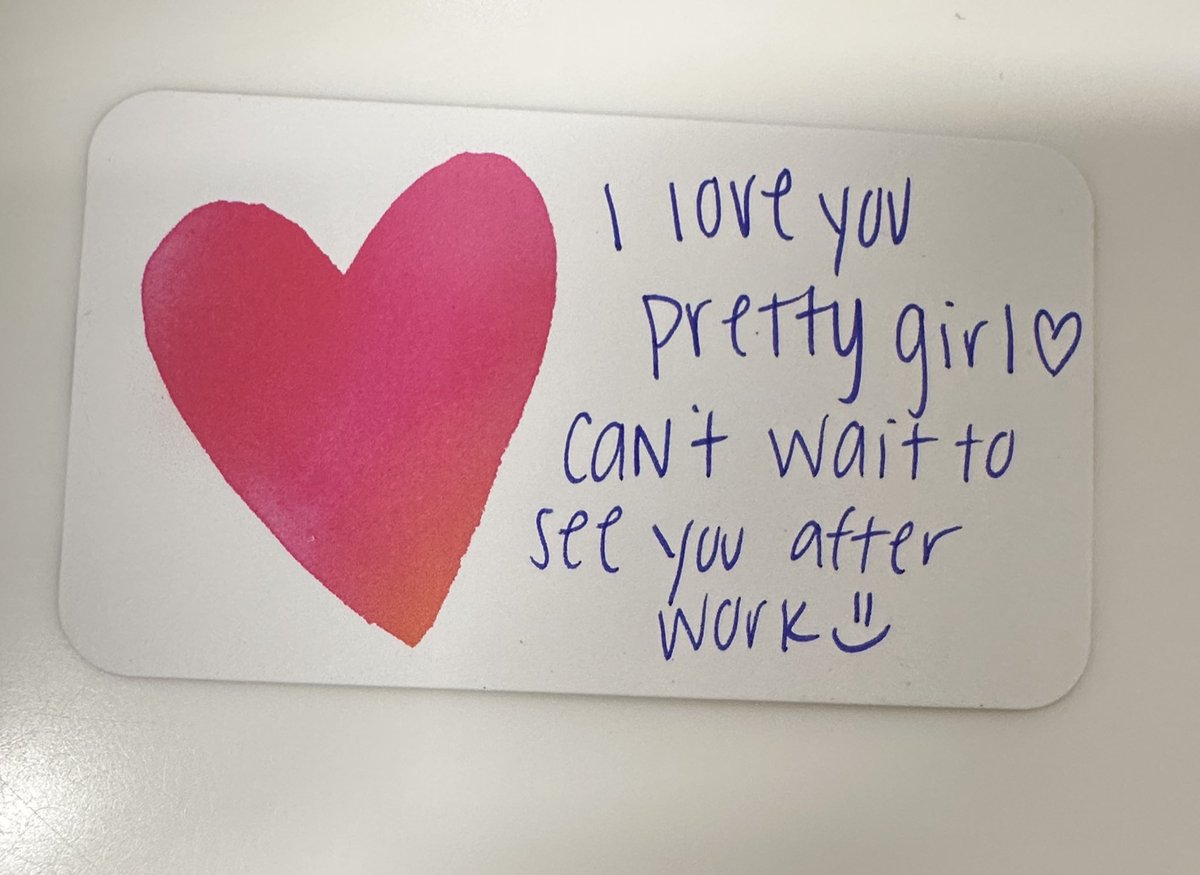 I love you
pretty girl♡
can't wait to
see you after
work :)